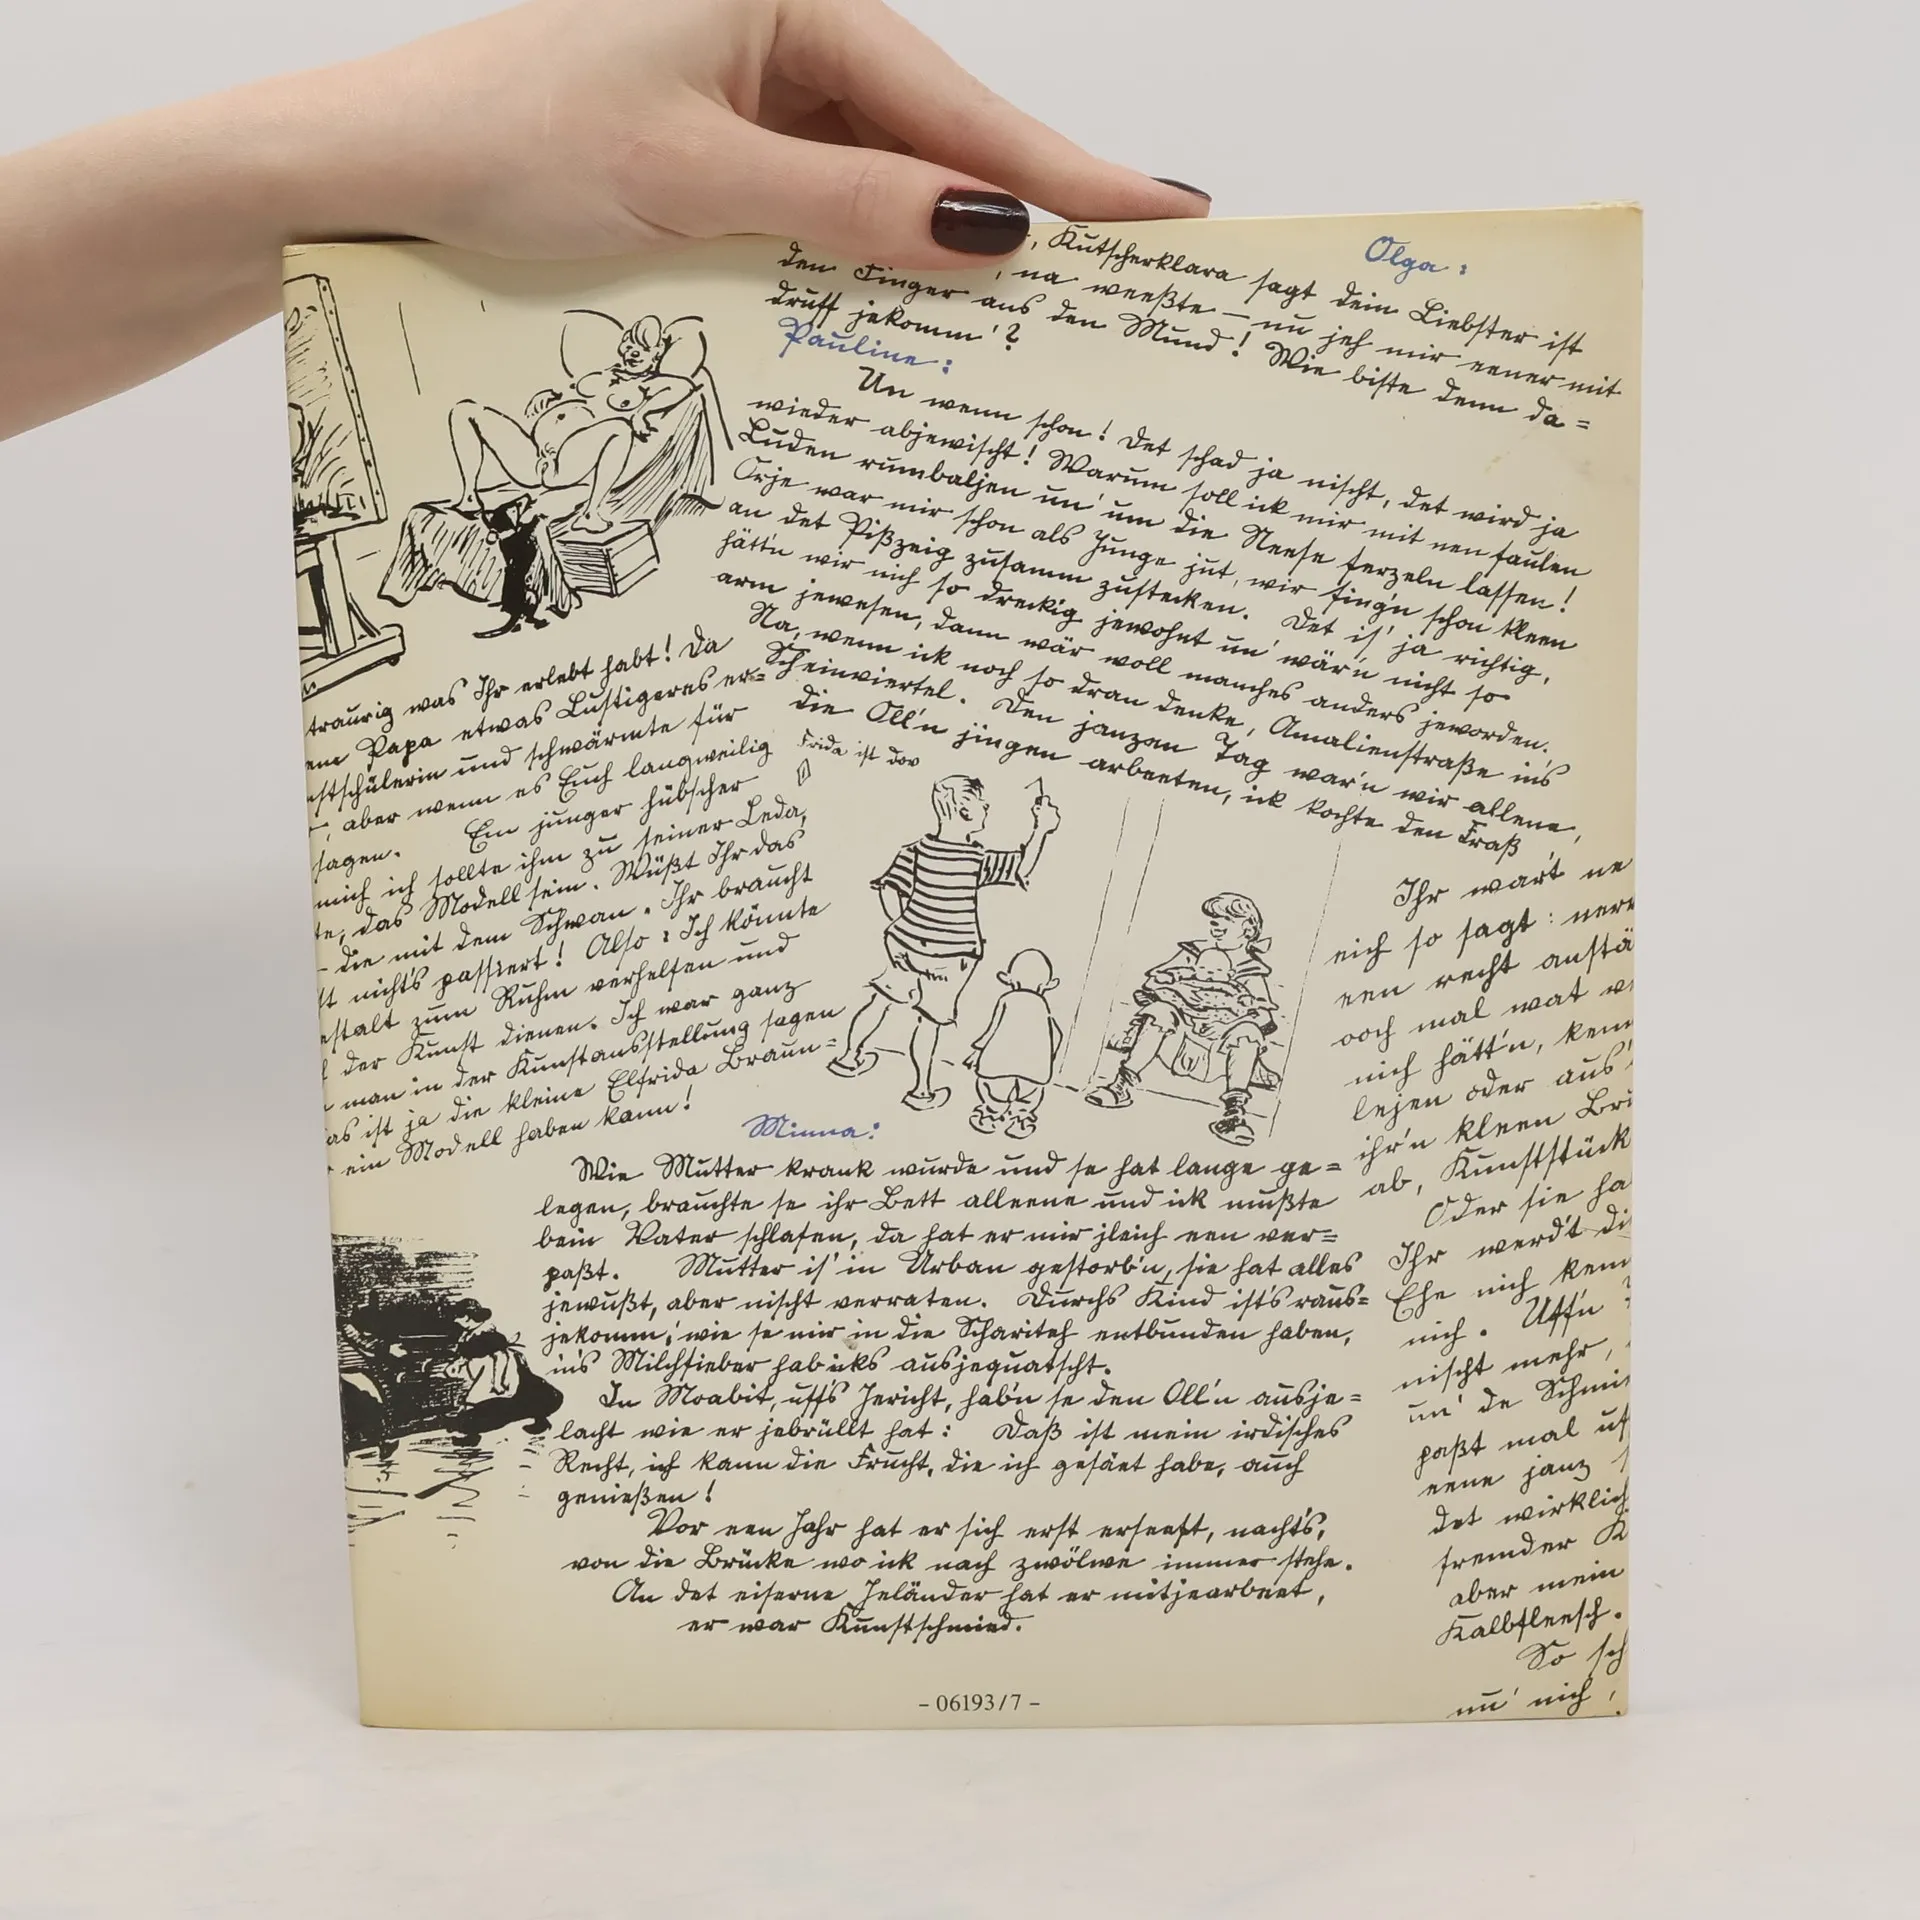 , Kutscherklara sagt dein Liebster ist
Olga:
, na weeßte – nu jeh mir eener mit
den Finger aus den Mund! Wie biste denn da=
druff jekomm'?
Pauline:
Un wenn schon! Det schad ja nischt, det wird ja
wieder abjewischt! Warum soll ick mir mit nen faulen
Luden rumbaljen un' um die Neese terzeln lassen!
Orje war mir schon als Junge jut, wir fing'n schon kleen
an det Pißzeig zusamm zustecken. Det is' ja richtig,
hätt'n wir nich so dreckig jewohnt un' wär'n nicht so
arm jewesen, dann wär woll manches anders jeworden.
Na, wenn ick noch so dran denke, Amalienstraße in's
Scheinviertel. Den janzen Tag war'n wir allene,
die Oll'n jingen arbeeten, ick kochte den Fraß
traurig was Ihr erlebt habt! Da
Papa etwas Lustigeres er=
und schwärmte für
, aber wenn es Euch langweilig
sagen. Ein junger hübscher
mich ich sollte ihm zu seiner Leda,
te, das Modell sein. Wüßt Ihr das
– die mit dem Schwan. Ihr braucht
nicht's passiert! Also: Ich könnte
estalt zum Ruhm verhelfen und
der Kunst dienen. Ich war ganz
man in der Kunstausstellung sagen
as ist ja die kleine Elfrida Braun=
ein Modell haben kann!
Frida ist dov
Minna:
Wie Mutter krank wurde und se hat lange ge=
legen, brauchte se ihr Bett alleene und ick mußte
bein Vater schlafen, da hat er mir jleich een ver=
paßt. Mutter is' in Urban gestorb'n, sie hat alles
jewußt, aber nischt verraten. Durchs Kind ist's raus=
jekomm,' wie se mir in die Schariteh entbunden haben,
in's Milchfieber hab icks ausjequatscht.
In Moabit, uff's Jericht, hab'n se den Oll'n ausje=
lacht wie er jebrüllt hat: Daß ist mein irdisches
Recht, ich kann die Frucht, die ich gesäet habe, auch
genießen!
Vor een Jahr hat er sich erst erseeft, nacht's,
von die Brücke wo ick nach zwölwe immer stehe.
An det eiserne Jeländer hat er mitjearbeet,
er war Kunstschmied.
Ihr war't ne
eich so sagt: nerv
een recht anstä
ooch mal wat
nich hätt'n, kenn
lejen oder aus'
ihr'n kleen Bri
ab, Kunststück
Oder sie ha
Ihr werd't di
Ehe nich kenn
nich. Uff'n
nischt mehr,
un' de Schmi
paßt mal uf
eene janz
det wirklich
fremder K
aber mein
Kalbfleesch.
So sch
nu' nich,
– 06193/7 –